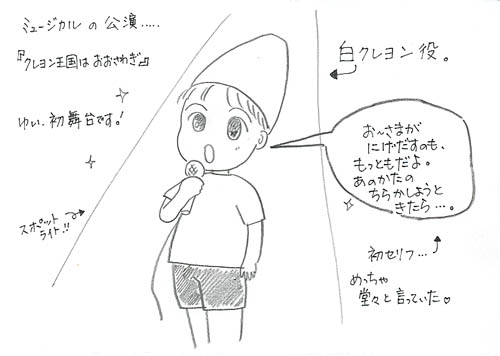 ミュージカルの公演.....
『クレヨン王国はおおさわぎ』
ゆい、初舞台です!
スポットライト!!
白クレヨン役。
お〜さまが
にげだすのも、
もっともだよ。
あのかたの
ちらかしようと
きたら…。
初セリフ…
めっちゃ
堂々と言っていた♡